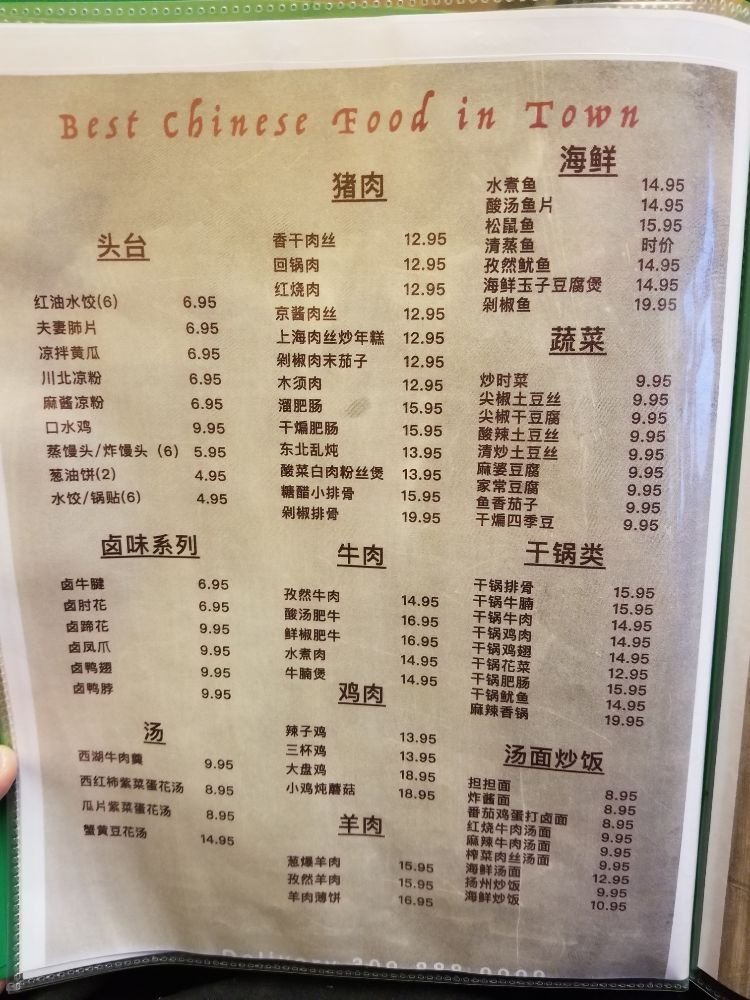 Best Chinese Food in Town
头台
红油水饺(6) 6.95
夫妻肺片 6.95
凉拌黄瓜 6.95
川北凉粉 6.95
麻酱凉粉 6.95
口水鸡 9.95
蒸馒头/炸馒头（6) 5.95
葱油饼(2) 4.95
水饺/锅贴(6) 4.95
卤味系列
卤牛腱 6.95
卤肘花 6.95
卤蹄花 9.95
卤凤爪 9.95
卤鸭翅 9.95
卤鸭脖 9.95
汤
西湖牛肉羹 9.95
西红柿紫菜蛋花汤 8.95
瓜片紫菜蛋花汤 8.95
蟹黄豆花汤 14.95
猪肉
香干肉丝 12.95
回锅肉 12.95
红烧肉 12.95
京酱肉丝 12.95
上海肉丝炒年糕 12.95
剁椒肉末茄子 12.95
木须肉 12.95
溜肥肠 15.95
干煸肥肠 15.95
东北乱炖 13.95
酸菜白肉粉丝煲 13.95
糖醋小排骨 15.95
剁椒排骨 19.95
牛肉
孜然牛肉 14.95
酸汤肥牛 16.95
鲜椒肥牛 16.95
水煮肉 14.95
牛腩煲 14.95
鸡肉
辣子鸡 13.95
三杯鸡 13.95
大盘鸡 18.95
小鸡炖蘑菇 18.95
羊肉
葱爆羊肉 15.95
孜然羊肉 15.95
羊肉薄饼 16.95
海鲜
水煮鱼 14.95
酸汤鱼片 14.95
松鼠鱼 15.95
清蒸鱼 时价
孜然鱿鱼 14.95
海鲜玉子豆腐煲 14.95
剁椒鱼 19.95
蔬菜
炒时菜 9.95
尖椒土豆丝 9.95
尖椒干豆腐 9.95
酸辣土豆丝 9.95
清炒土豆丝 9.95
麻婆豆腐 9.95
家常豆腐 9.95
鱼香茄子 9.95
干煸四季豆 9.95
干锅类
干锅排骨 15.95
干锅牛腩 15.95
干锅牛肉 14.95
干锅鸡肉 14.95
干锅鸡翅 14.95
干锅花菜 12.95
干锅肥肠 15.95
干锅鱿鱼 14.95
麻辣香锅 19.95
汤面炒饭
担担面 8.95
炸酱面 8.95
番茄鸡蛋打卤面 8.95
红烧牛肉汤面 9.95
麻辣牛肉汤面 9.95
榨菜肉丝汤面 9.95
海鲜汤面 12.95
扬州炒饭 9.95
海鲜炒饭 10.95